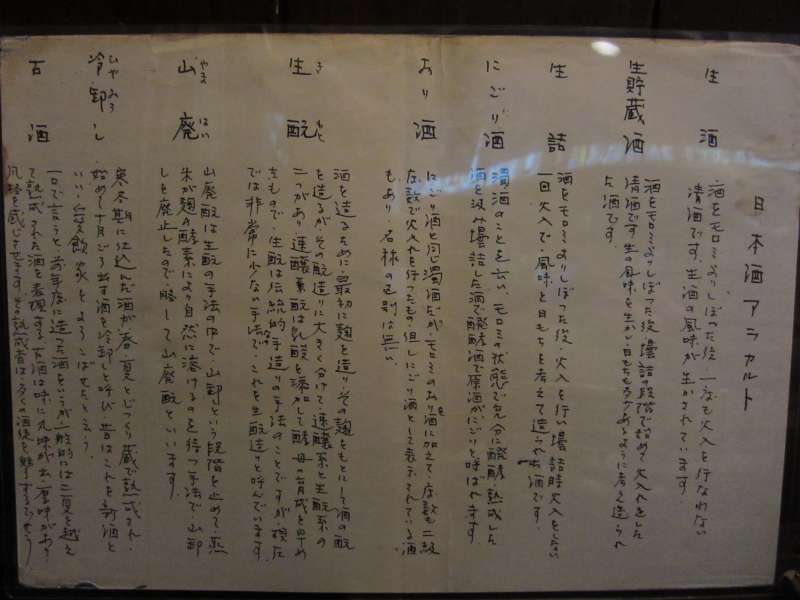 日本酒アラカルト
生酒
酒をモロミよりしぼった後、一度も火入を行なわない
清酒です。生酒の風味が生かされています。
生貯蔵酒
酒をモロミよりしぼった後、壜詰の段階で始めて火入れをした
清酒です。生の風味を生かし、日もちも多少あるように考え造られ
た酒です。
生詰
酒をモロミよりしぼった後、火入を行い壜詰時火入をしない
一回火入で、風味と日もちを考えて造られた酒です。
にごり酒
濁酒のことを言い、モロミの状態で充分に醗酵、熟成した
酒を汲み壜詰した酒で醗酵酒で原酒がにごりと呼ばれます。
おり酒
にごり酒と同じ濁酒だが、モロミのおりを酒に加えて、度数も二級
度数で火入れを行ったもの、但しにごり酒として表示されている酒
もあり、名称の区別は無い。
生酛
きもと
酒を造るために、最初に麹を造り、その麹をもとにして酒の酛
を造るがその酛造りに大きく分けて、速醸系と生酛系の
二つがあり速醸系酛は乳酸を添加して酵母の育成を早め
たもので、生酛は伝統的手造りの手法のことですが、現在
では非常に少ない手法で、これを生酛造りと呼んでいます。
山廃
やまはい
山廃酛は生酛の手法の中で、山卸という段階を止めて、蒸
米が麹の酵素により自然に溶けるのを待つ手法で、山卸
しを廃止したので、略して山廃酛といいます。
冷卸し
ひやおろし
寒冬期に仕込んだ酒が春、夏とじっくり蔵で熟成され、
始めて十月ごろ出す酒を冷卸しと呼び、昔はこれを新酒と
いい、愛飲家をよろこばせたと言う。
古酒
一口で言うと、前年度に造った酒をいうが一般的には二夏を越え
て熟成された酒を表現する。古酒は味に丸味が出、厚味があり
風格を感じさせます。その熟成香は、多くの酒徒を魅了するでせう